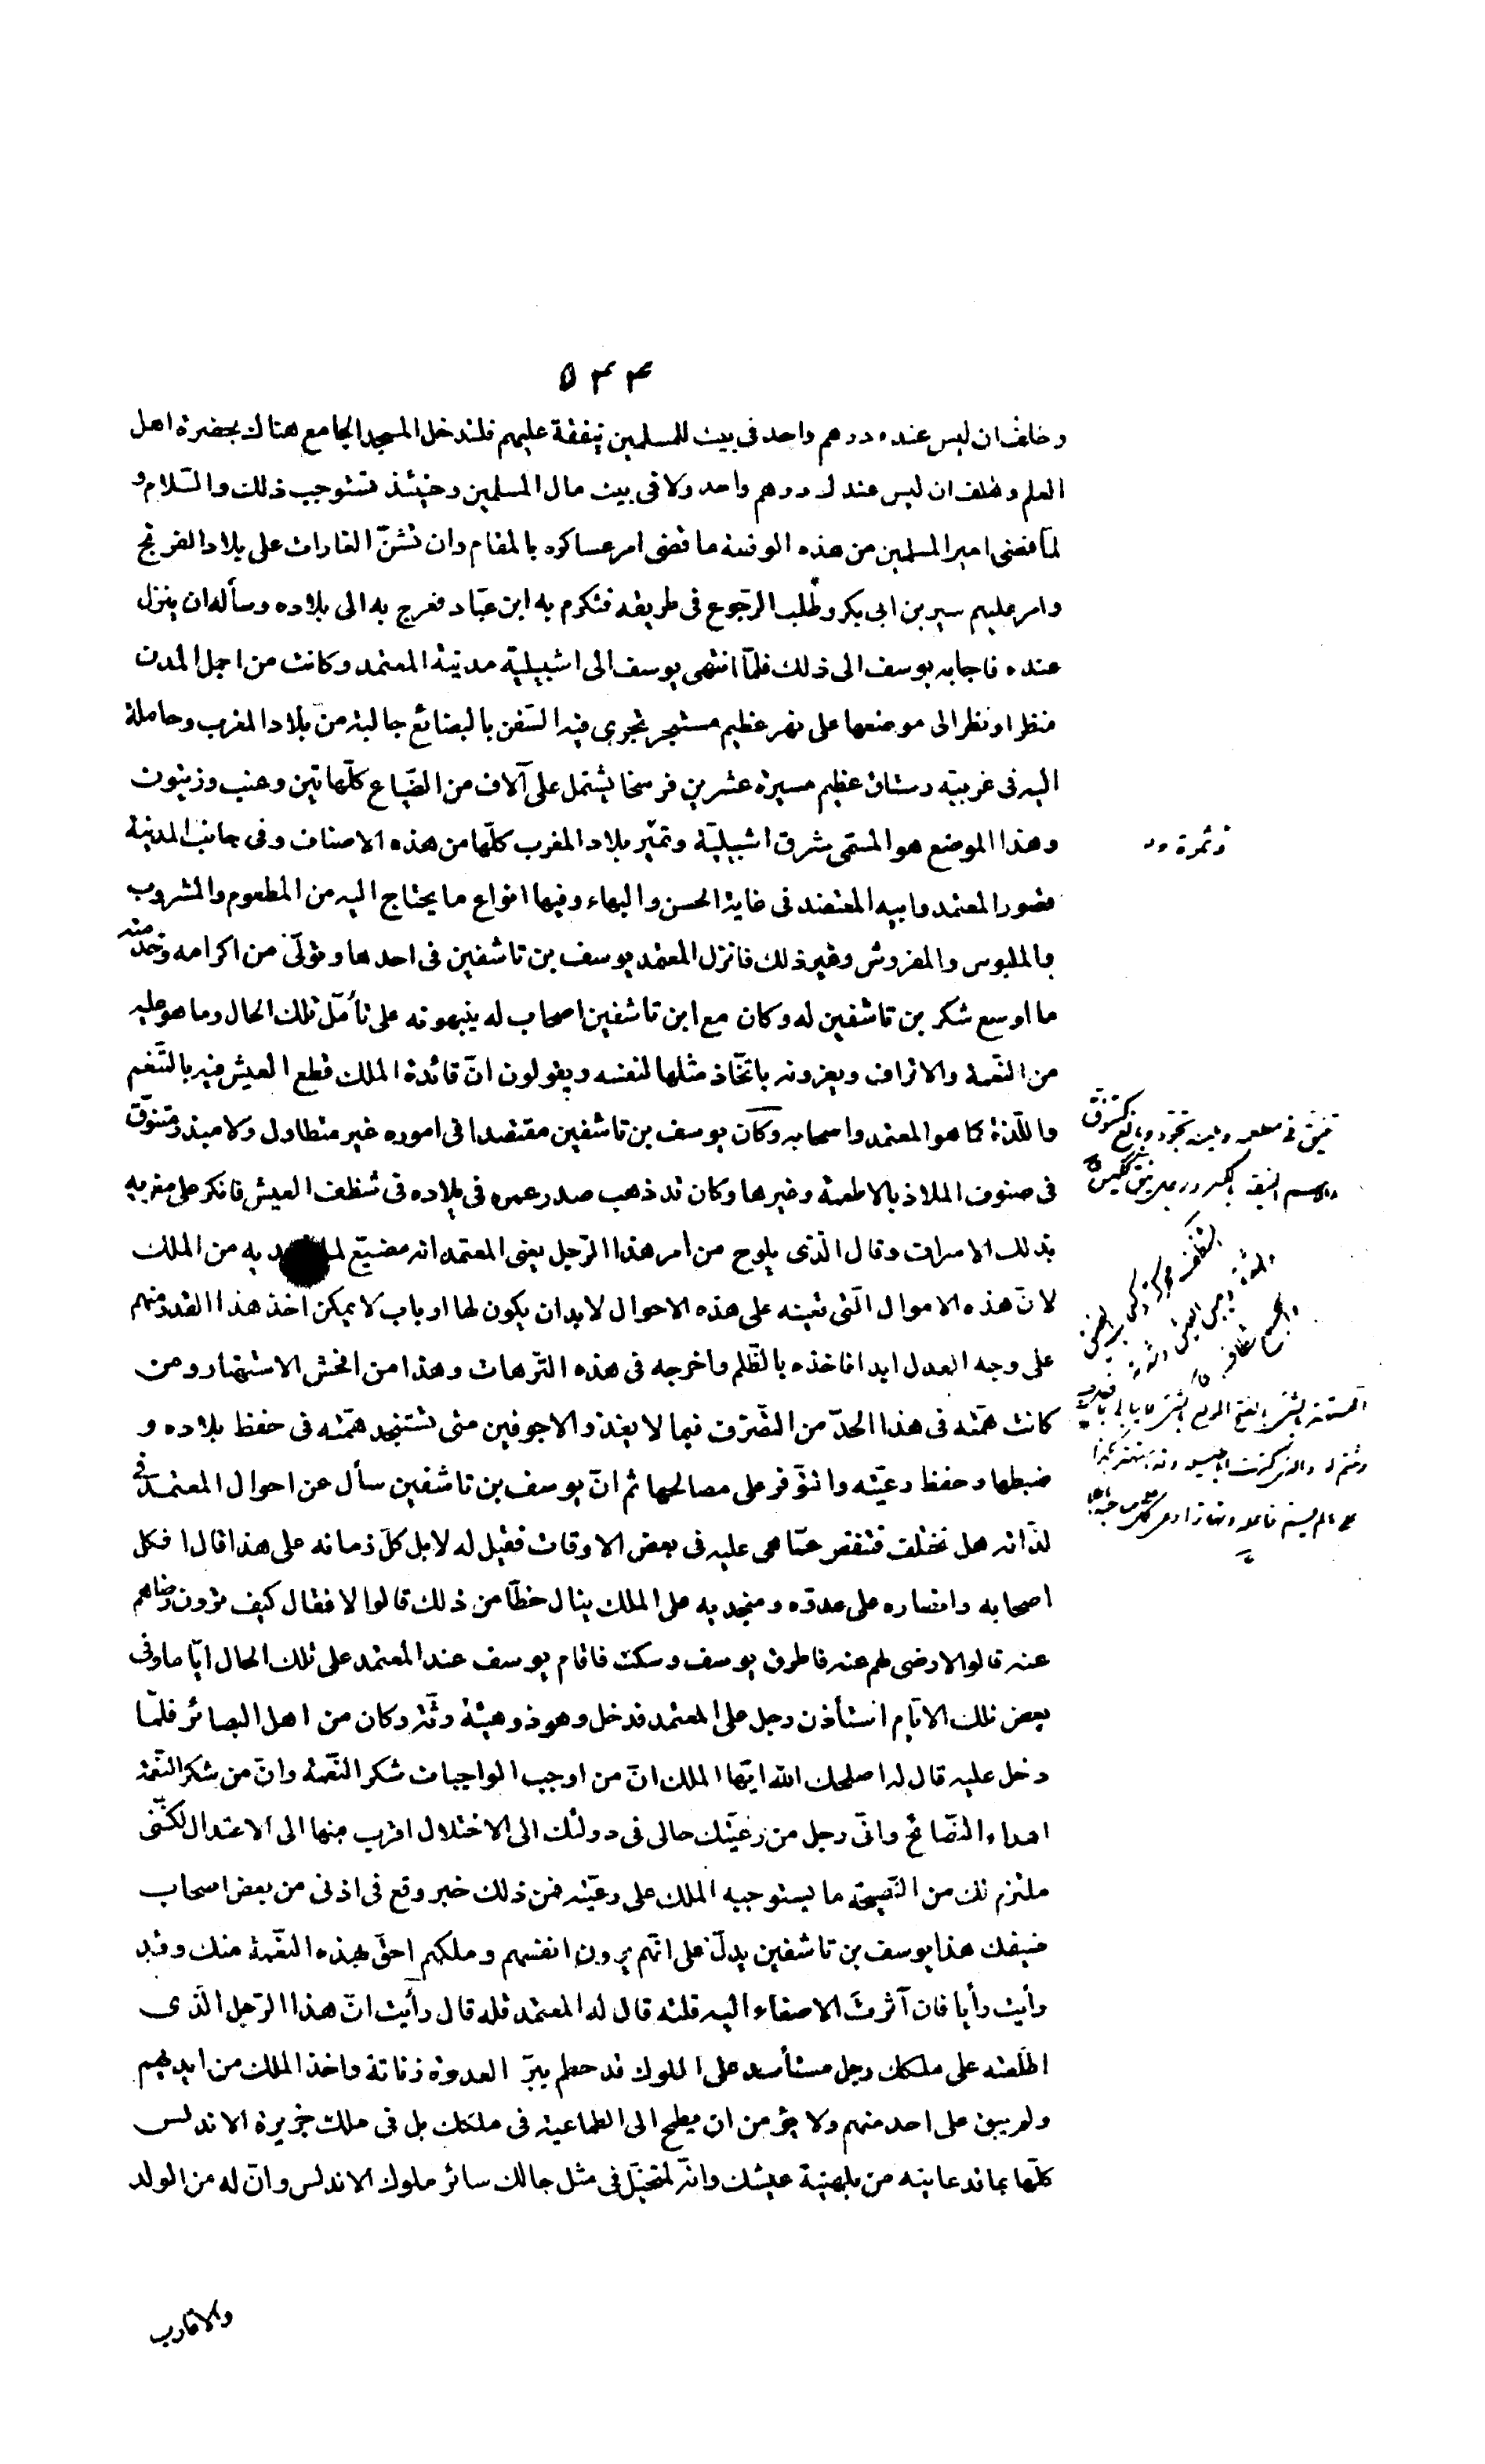 ٥٣٣
وحلف ان ليس عنده درهم واحد فى بيت للمسلمين ينفقة عليهم فلتدخل المسجد الجامع هناك بحضرة اهل
العلم وتحلف ان ليس عندك درهم واحد ولا فى بيت مال المسلمين وحينئذ تستوجب ذلك والسّلام و
لمّا قضى امير المسلمين من هذه الوقعة ما قضى امر عساكره بالمقام وان تشنّ الغارات على بلاد الفرنج
وامر عليهم سير بن ابى بكر وطلب الرّجوع فى طريقه فتكرم به ابن عبّاد فعرج به الى بلاده وسأله ان ينزل
عنده فاجابه يوسف الى ذلك فلمّا انتهى يوسف الى اشبيليّة مدينة المعتمد وكانت من اجمل المدن
منظرا ونظر الى موضعها على نهر عظيم مستبحر تجرى فيه السّفن بالبضائع جالبة من بلاد المغرب وحاملة
اليه فى غربيّه رستاق عظيم مسيرة عشرين فرسخا يشتمل على آلاف من الضّياع كلّها تين وعنب وزيتون
وهذا الموضع هو المسمّى شرق اشبيليّة وتميّر بلاد المغرب كلّها من هذه الاصناف وفى جانب المدينة
قصور المعتمد وابيه المعتضد فى غاية الحسن والبهاء وفيها انواع ما يحتاج اليه من المطعوم والمشروب
والملبوس والمفروش وغير ذلك فانزل المعتمد يوسف بن تاشفين فى احدها وتولّى من اكرامه وخدمته
ما اوسع شكر بن تاشفين له وكان مع ابن تاشفين اصحاب له ينبهونه على تأمّل تلك الحال وما هو عليه
من النّعمة والاتراف ويغرونه باتّخاذ مثلها لنفسه ويقولون انّ فائدة الملك قطع العيش فيه بالتّنعّم
واللّذة كما هو المعتمد واصحابه وكان يوسف بن تاشفين مقتصدا فى اموره غير متطاول ولا مبذر متنوّق
فى صنوف الملاذ بالاطعمة وغيرها وكان قد ذهب صدر عمره فى بلاده فى شظف العيش فانكر على مغريه
بذلك الاسراف وقال الّذى يلوح من امر هذا الرّجل يعنى المعتمد انه مضيّع به من الملك
لانّ هذه الاموال الّتى تعينه على هذه الاحوال لا بد ان يكون لها ارباب لا يمكن اخذ هذا القدر منهم
على وجه العدل ابدا فاخذه بالظّلم واخرجه فى هذه التّرهات وهذا من افحش الاستهتار ومن
كانت همّته فى هذا الحدّ من التّصرّف فيما لا يغذو الاجوفين متى تستنجد همّته فى حفظ بلاده و
ضبطها وحفظ رعيّته والتّوفر على مصالحها ثم انّ يوسف بن تاشفين سأل عن احوال المعتمد فى
لذّاته هل تختلف فتنقص عمّا هى عليه فى بعض الاوقات فقيل له لا بل كلّ زمانه على هذا قال افكل
اصحابه وانصاره على عدوّه ومنجديه على الملك ينال حظّا من ذلك قالوا لا فقال كيف ترون رضاهم
عنه قالوا لا رضى لهم عنه فاطرق يوسف وسكت فاقام يوسف عند المعتمد على تلك الحال ايّاما وفى
بعض تلك الايّام استأذن رجل على المعتمد فدخل وهو ذو هيئة رثّة وكان من اهل البصائر فلمّا
دخل عليه قال له اصلحك الله ايّها الملك انّ من اوجب الواجبات شكر النّعمة وانّ من شكر النّعمة
اهداء النّصائح وانّى رجل من رعيّتك حالى فى دولتك الى الاختلال اقرب منها الى الاعتدال لكنّنى
ملتزم لك من النّصيحة ما يستوجبه الملك على رعيّته فمن ذلك خبر وقع فى اذنى من بعض اصحاب
ضيفك هذا يوسف بن تاشفين يدلّ على انّهم يرون انفسهم وملكهم احقّ بهذه النّعمة منك وقد
رأيت رأيا فان آثرت الاصغاء اليه قلته قال له المعتمد قله قال رأيت انّ هذا الرّجل الّذى
اطلعته على ملكك رجل مستأسد على الملوك قد حطم ببرّ العدوة زناتة واخذ الملك من ايديهم
ولم يبق على احد منهم ولا يؤمن ان يطمح الى الطماعية فى ملكك بل فى ملك جزيرة الاندلس
كلّها بما قد عاينه من بلهنية عيشك وانّه لمتخيّل فى مثل حالك سائر ملوك الاندلس وانّ له من الولد
والاقارب